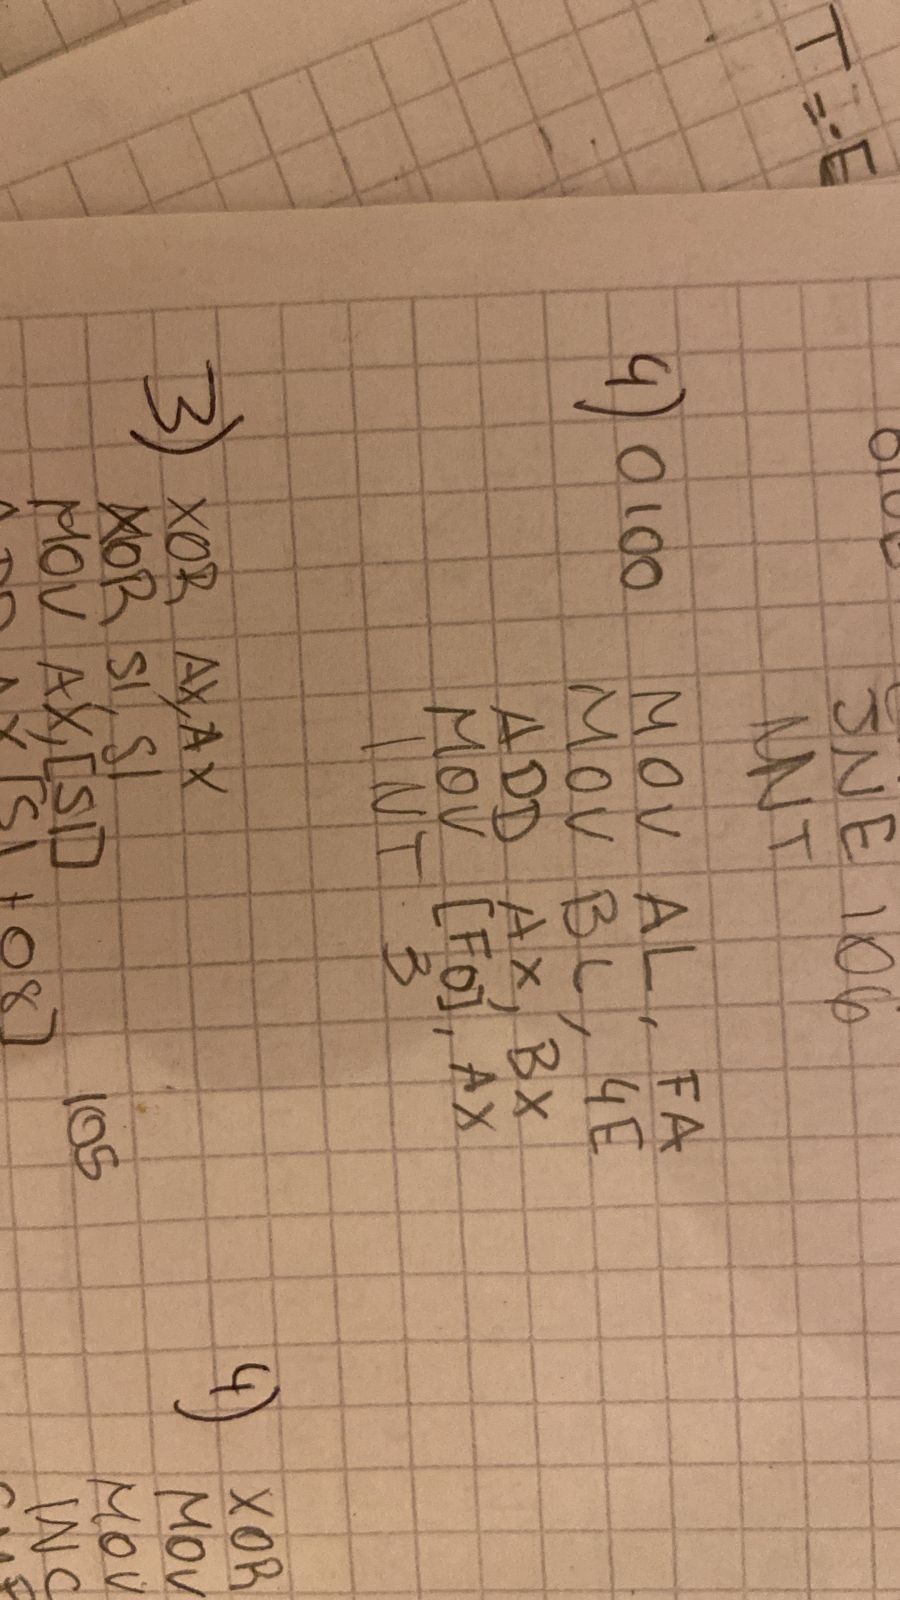 T = -E
JNE 106
INT
4) 0100 MOV AL, FA
MOV BL, 4E
ADD AX, BX
MOV [F0], AX
INT 3
3) XOR AX,AX
XOR SI, SI
MOV AX,[SI]
ADD AX [SI+08]
105
4) XOR
MOV
MOV
INC